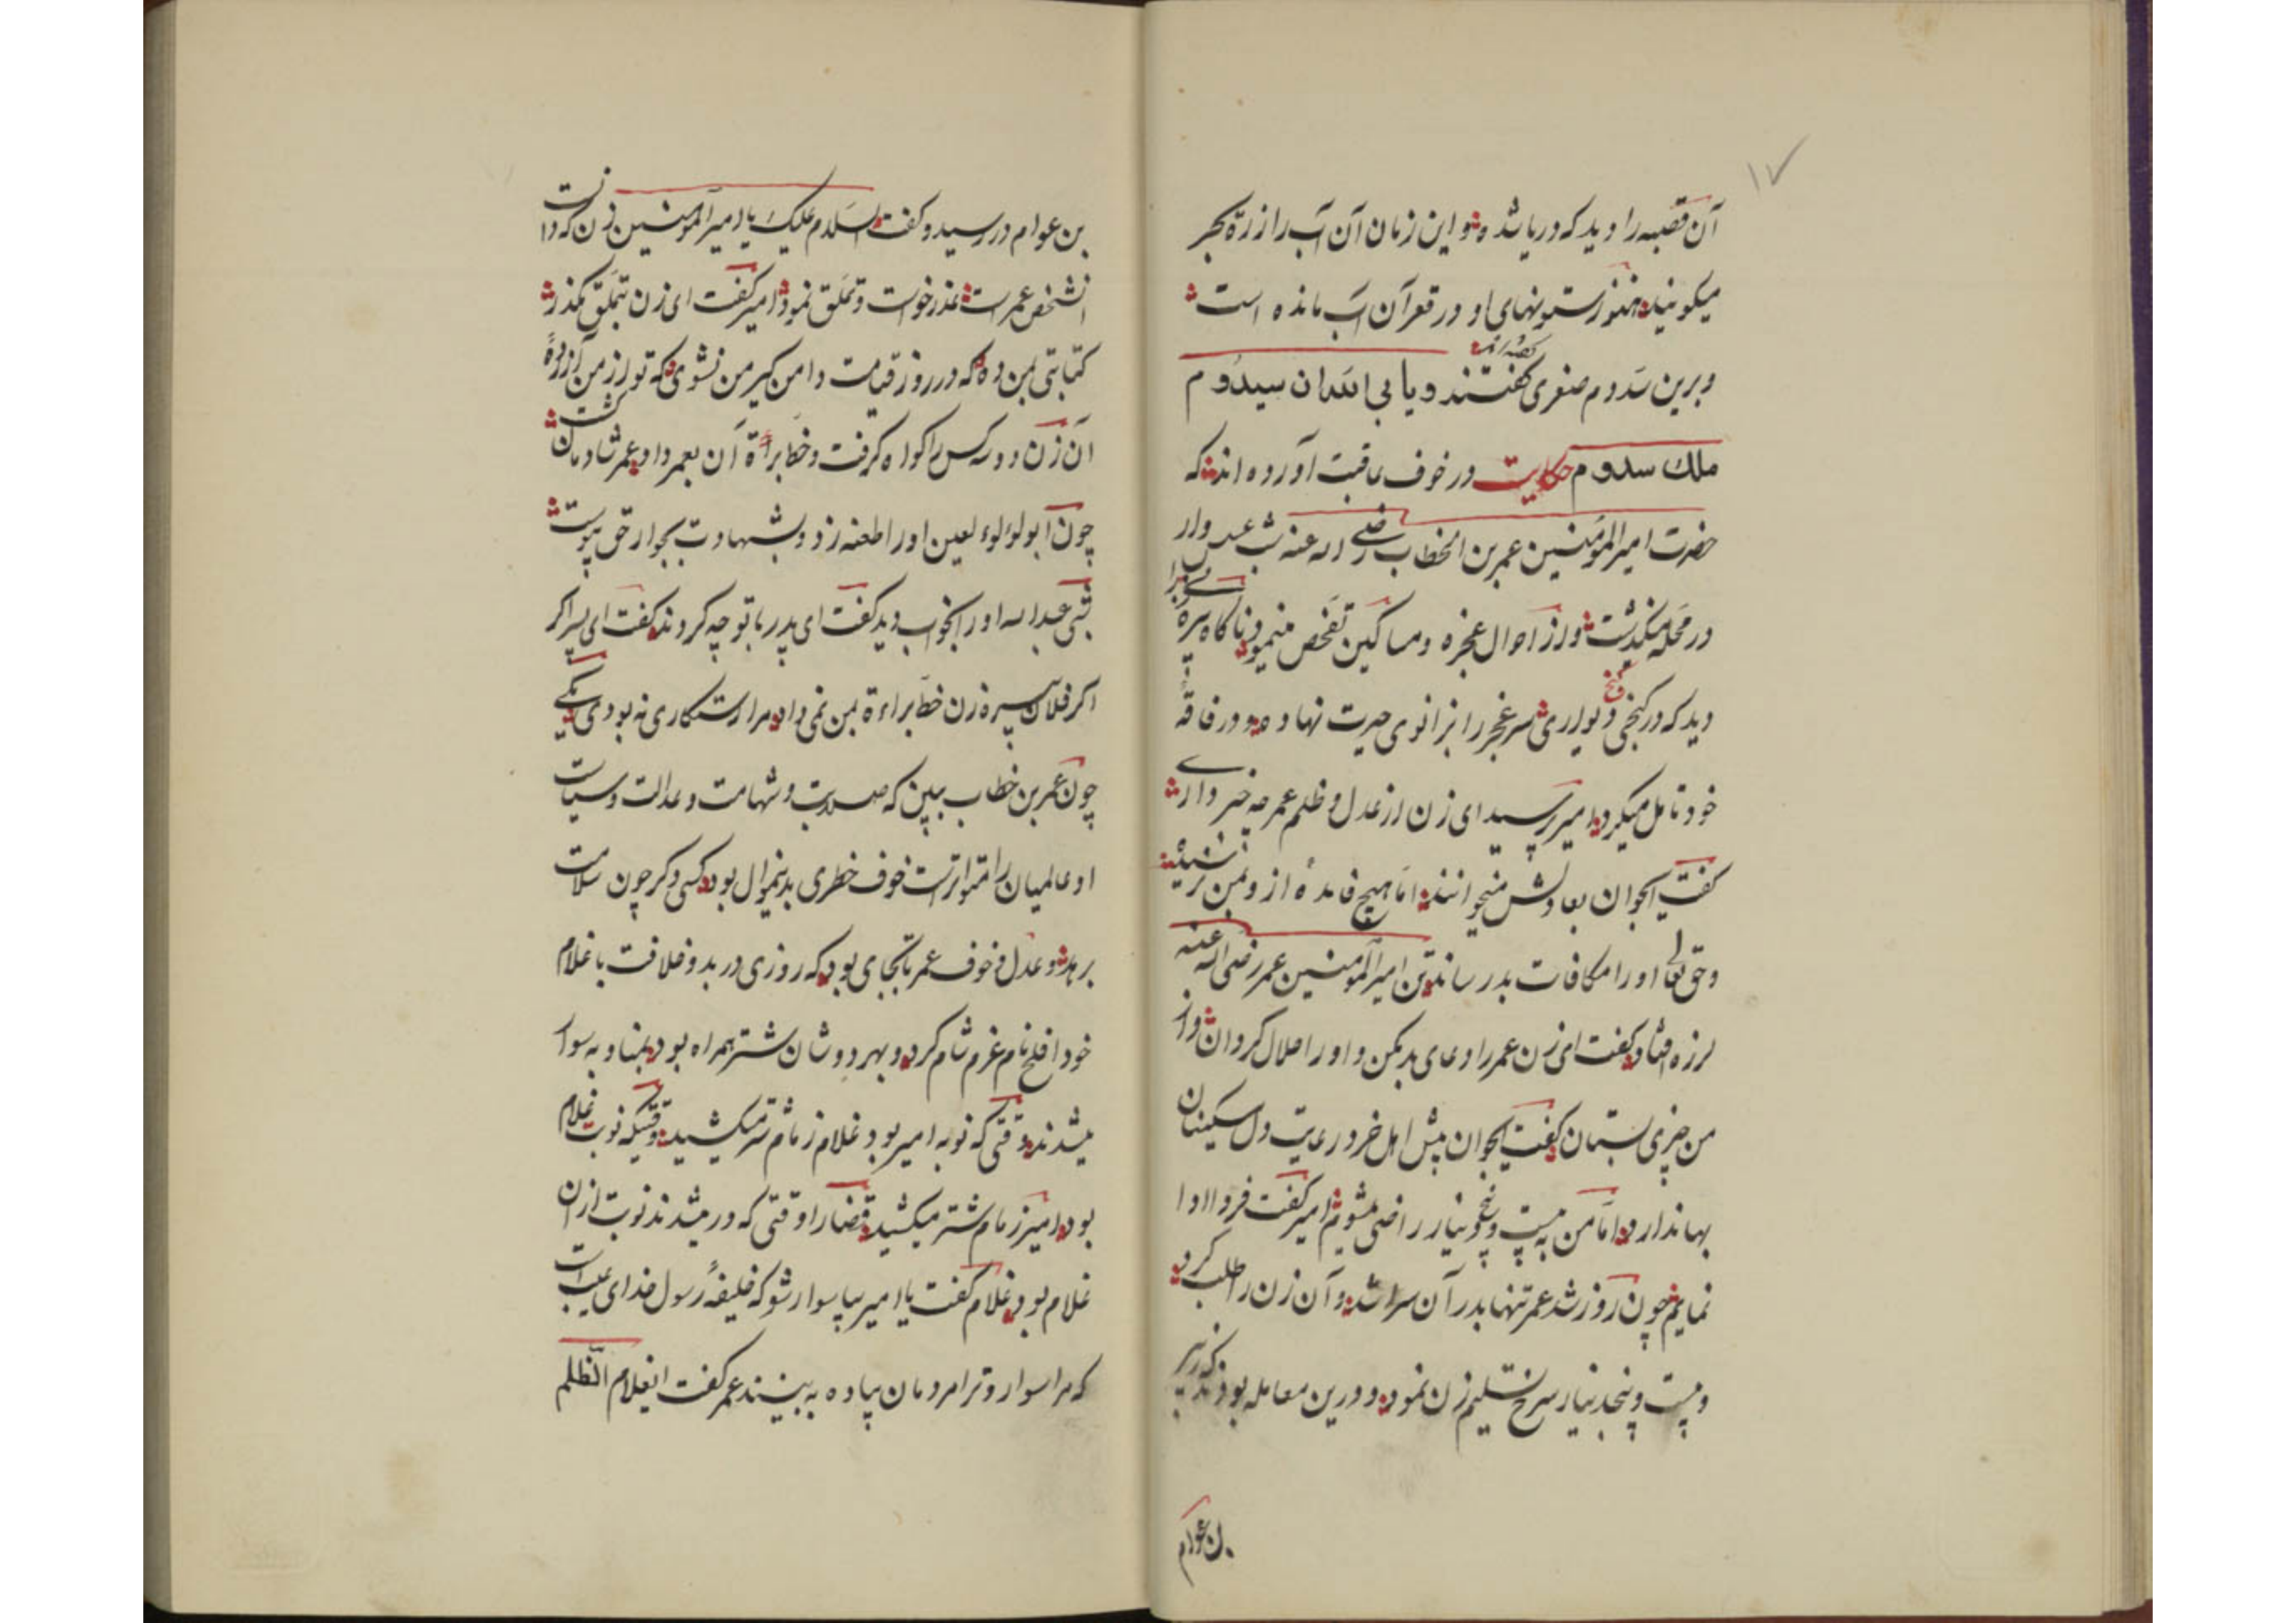 ١٧
آن قصبه را دید که دریا شده و این زمان آن آب را زرّهٔ بحر
میکویند هنوز ستونهای او در قعر آن آب مانده است
و برین سدوم صغری کفتند و یا بی الله ان سیدوم
ملك سدوم حکایت در خوف عاقبت آورده اند که
حضرت امیر المؤمنین عمر بن الخطاب رضی الله عنه شب عسس وار
در محله میکذشت و از احوال عجزه و مساکین تفحص مینمود ناکاه پیره زنی را
دید که در کنجی دیواری سر عجز را بزانوی حیرت نهاده و در فاقهٔ
خود تامل میکرد امیر پرسید ای زن از عدل و ظلم عمر چه خبر داری
کفت ایجوان بعادلش میخوانند اما هیچ فایدهٔ ازو بمن نرسیده
و حق تعالی او را مکافات بد رساند تن امیر المومنین عمر رضی الله عنه
لرزه افتاد کفت ای زن عمر را دعای بد مکن و او را حلال کردان و از
من چیزی بستان کفت ایجوان پیش اهل خرد رعایت دل مسکینان
بها ندارد اما من به بیست و پنج دینار راضی میشوم امیر کفت فردا ادا
نمایم چون روز شد عمر تنها بدر آن سرا شد و آن زن را طلب کرد
و بیست و پنجدینار سرخ تسلیم زن نمود و درین معامله بودند که زبیر
بن عوام
بن عوام در رسید و کفت السّلام علیک یا امیر المومنین زن که دانست
انشخص عمر است عذر خواست و تملّق نمود امیر کفت ای زن تملق بکذر
کتابتی بمن ده که در روز قیامت دامن کیر من نشوی که تو از من آزردهٔ
ان زن دو سه کس را کواه کرفت و خط براءة آن بعمر داد عمر شادمان کشت
چون ابو لؤلوء لعین او را طعنه زد و بشهادت بجوار حق پیوست
شبی عبد الله او را بخواب دید کفت ای پدر با تو چه کردند کفت ای پسر اکر
اکر فلان پیره زن خط براءة بمن نمی داد مرا رستکاری نه بودی
چون عمر بن خطاب ببین که صلابت و شهامت و عدالت و سیاست
او عالمیان را متواترست خوف خطری بدینموال بود کسی دکر چون سلامت
برهد و عدل و خوف عمر تا بجای بود که روزی در بدو خلافت با غلام
خود افلح نام عزم شام کرد و بهر دو شان شتر همراه بود بمناوبه سوار
میشدند وقتی که نوبه امیر بود غلام زمام شتر میکشید و وقتیکه نوبت غلام
بود امیر زمام شتر میکشید قضارا وقتی که در میشدند نوبت ازان
غلام بود غلام کفت یا امیر بیا سوار شو که خلیفهٔ رسول خدای عیب است
که مرا سوار و ترا مردمان پیاده به بینند عمر کفت ایغلام الظلم